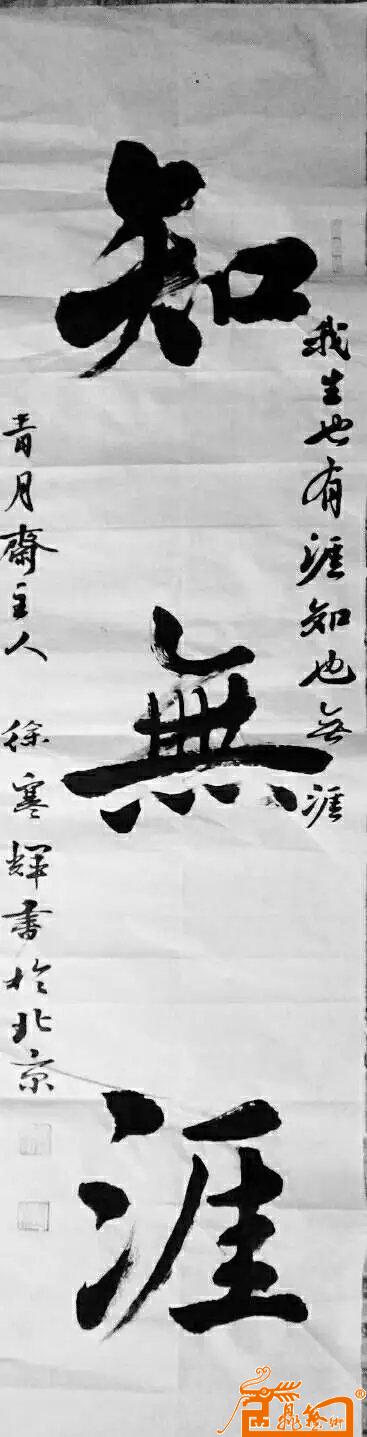 我生也有涯知也无涯
知無涯
青月齋主人 徐寒輝書於北京